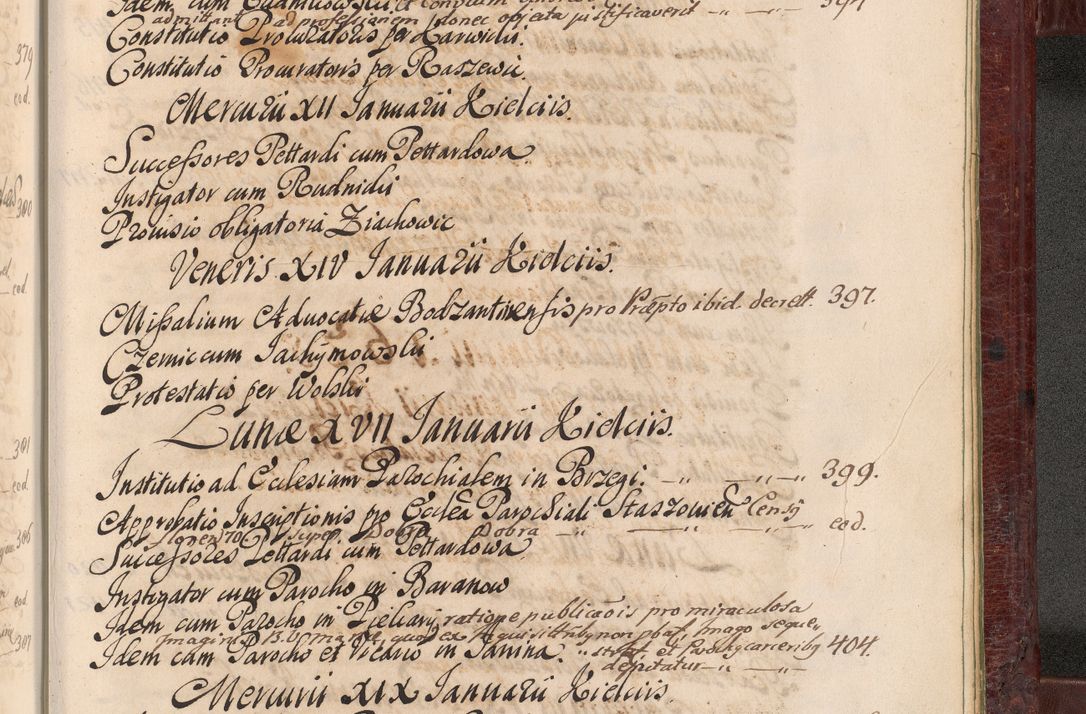 379
eod.
Idem cum
admittant ad professionem donec objecta justificaverit
Constitutio Procuratoris per Karwicki.
Constitutio Procuratoris per Raszewic.
Mercurii XII Januarii Kielciis.
Successores Pettardi cum Pettardowa.
Instigator cum Rudnicki
380
Provisio obligatoria Ziachowic
Veneris XIV Januarii Kielciis.
eod.
Missalium Advocatiæ Bodzantinensis pro Præpto ibid. decrett. 397.
Czernic cum Jachymowski
Protestatio per Wolski
Lunæ XVII Januarii Kielciis.
381
Institutio ad Ecclesiam Parochialem in Brzegi. —"— —"— 399.
eod.
Approbatio Inscriptionis pro Ecclea Parochiali Staszovien Censy
eod.
super Dobra Dobra —"—
386
Successores Pettardi cum Pettardowa
Instigator cum Parocho in Baranow
eod.
Idem cum Parocho in Pieliary, ratione publicaois pro miraculosa
Imaginis B.V. Mariæ, quæ ex Inquisitnibg non pbat, Imago seque,
387
Idem cum Parocho et Vicario in Janina. " strat. et Probng carceribg 404.
deputatur —"— —"—
Mercurii XIX Januarii Kielciis.